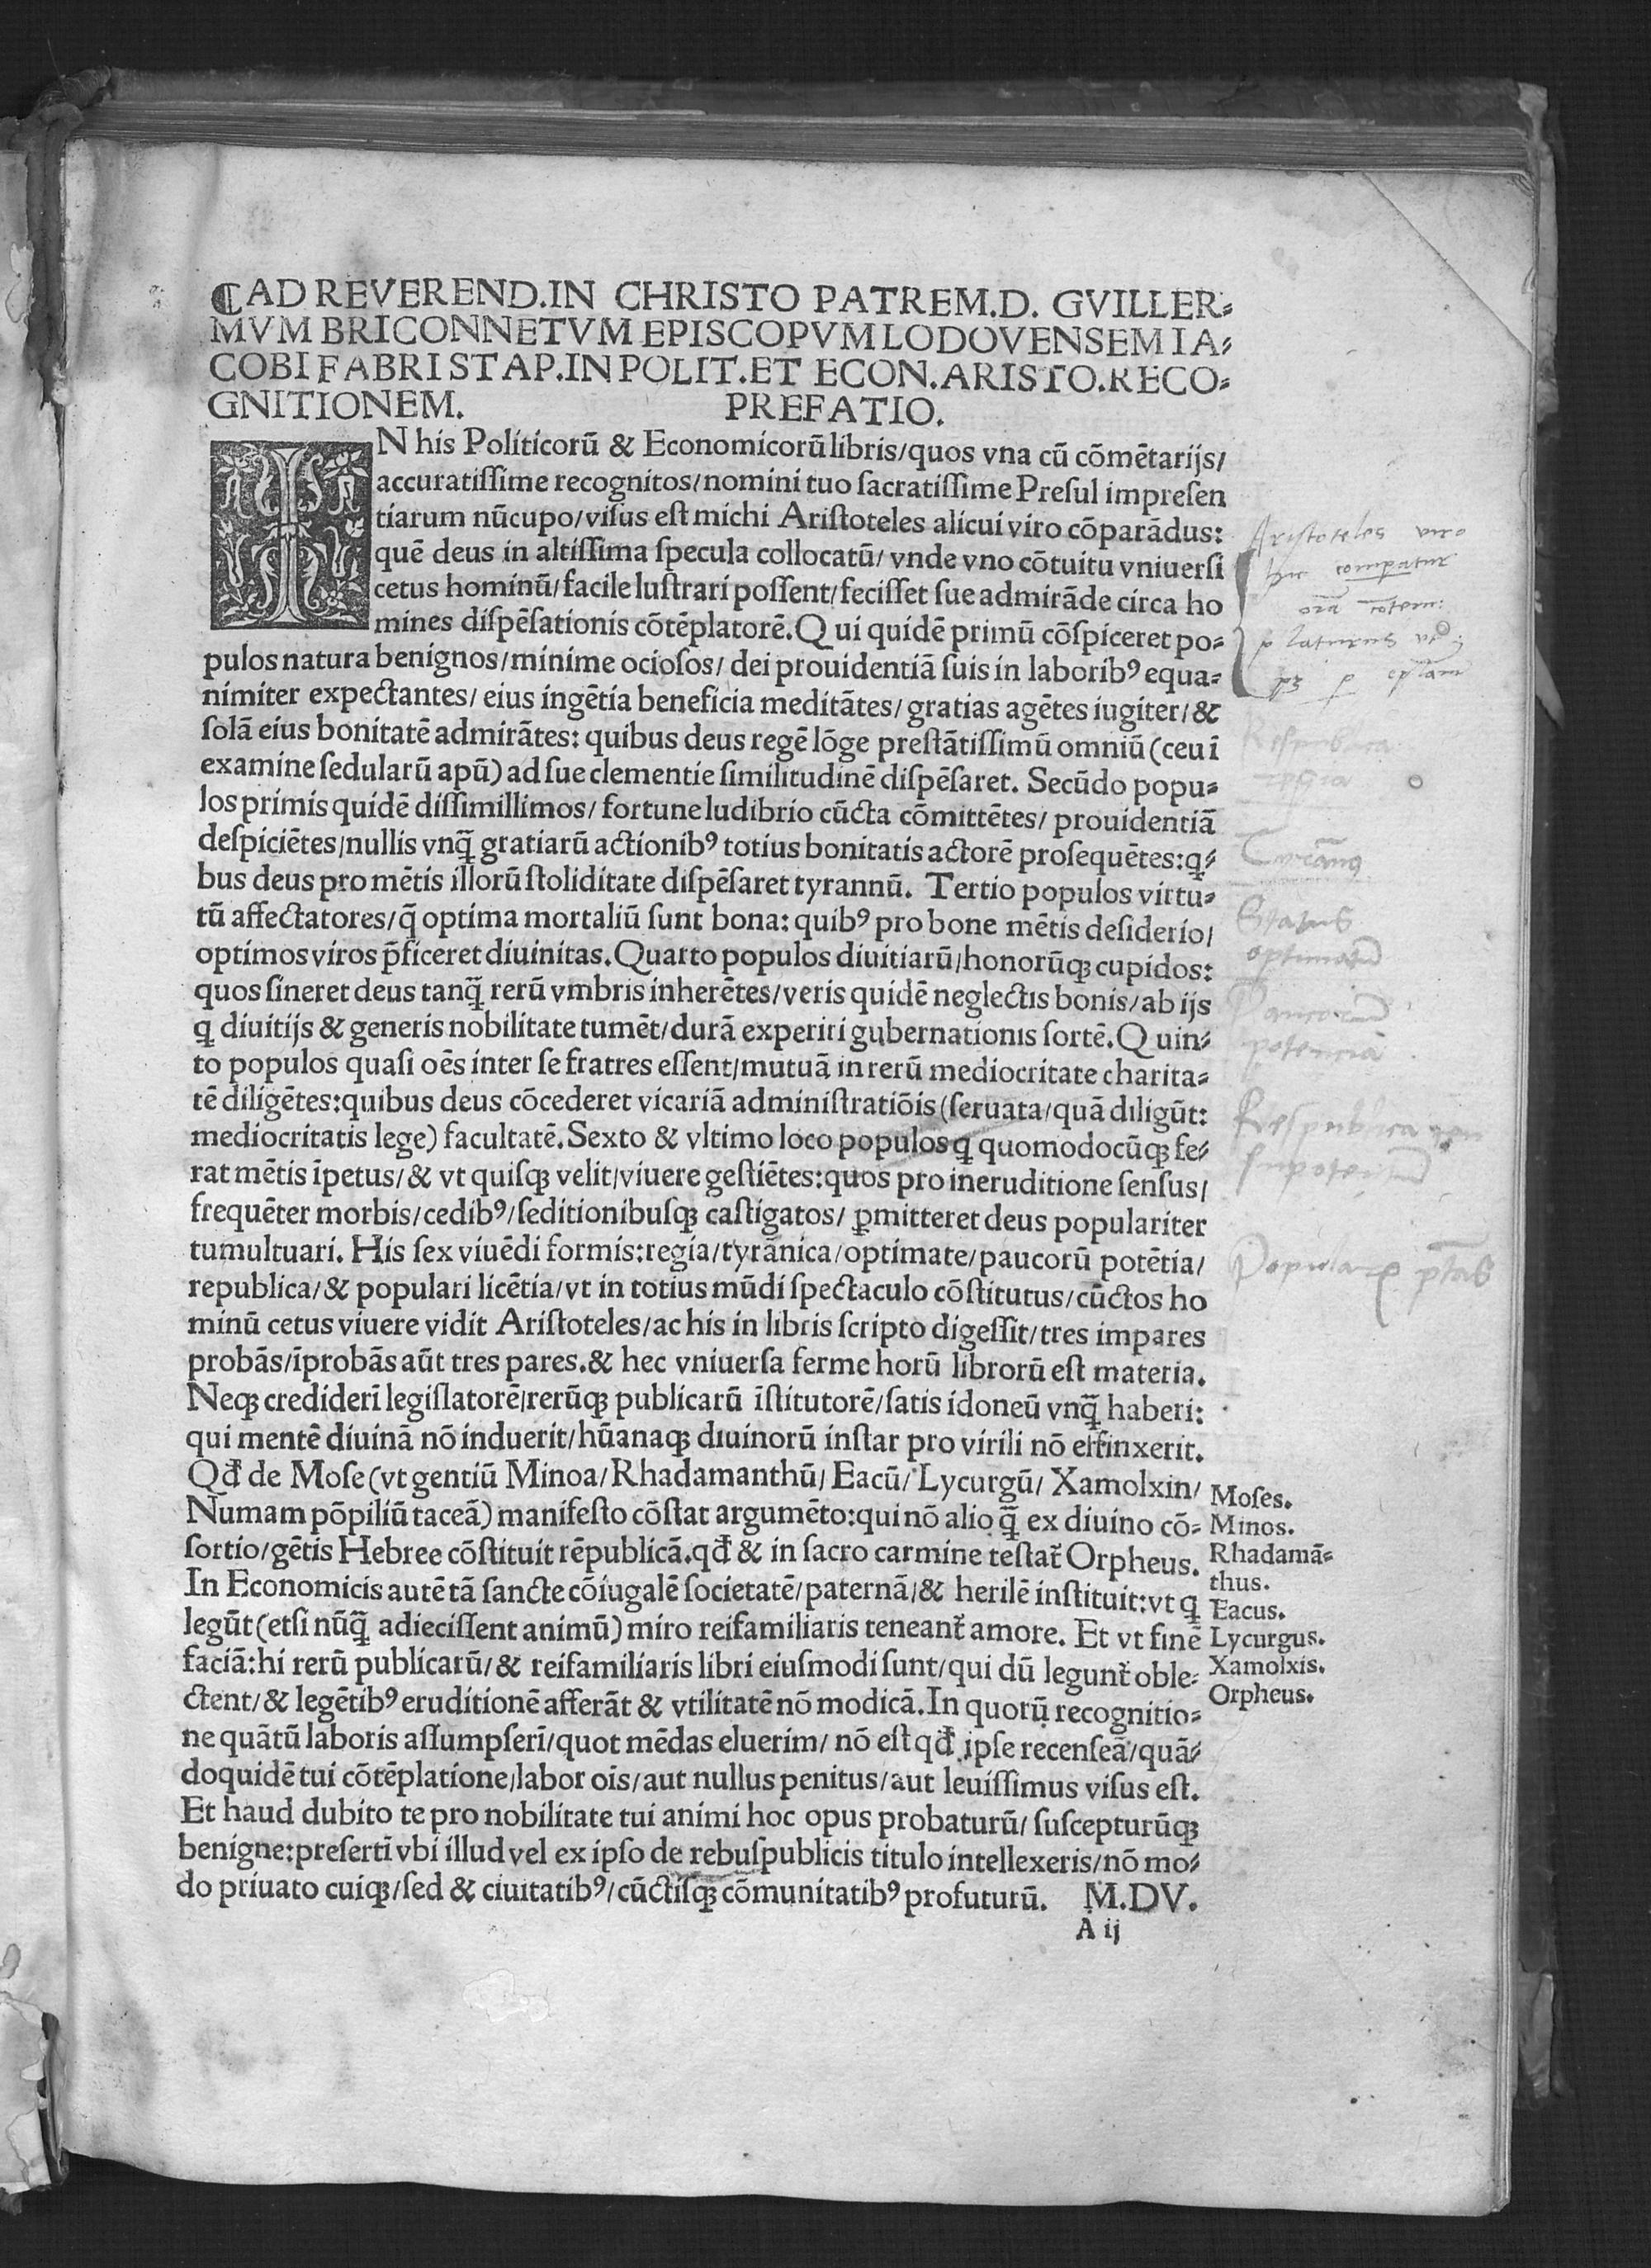 ⸿AD REVEREND.IN CHRISTO PATREM.D. GVILLER-
MVM BRICONNETVM EPISCOPVM LODOVENSEM IA-
COBI FABRI STAP.IN POLIT.ET ECON.ARISTO.RECO-
GNITIONEM. PREFATIO.
IN his Politicorū & Economicorū libris/quos vna cū cōmētarijs/
accuratiſſime recognitos/nomini tuo ſacratiſſime Preſul impreſen
tiarum nūcupo/viſus eſt michi Ariſtoteles alicui viro cōparādus:
quē deus in altiſſima ſpecula collocatū/ vnde vno cōtuitu vniuerſi
cetus hominū/facile luſtrari poſſent/feciſſet ſue admirāde circa ho
mines diſpēſationis cōtēplatorē.Qui quidē primū cōſpiceret po-
pulos natura benignos/minime ocioſos/ dei prouidentiā ſuis in laborib⁹ equa-
nimiter expectantes/ eius ingētia beneficia meditātes/ gratias agētes iugiter/&
ſolā eius bonitatē admirātes: quibus deus regē lōge preſtātiſſimū omniū (ceu ī
examine ſedularū apū) ad ſue clementie ſimilitudinē diſpēſaret. Secūdo popu-
los primis quidē diſſimillimos/ fortune ludibrio cūcta cōmittētes/ prouidentiā
deſpiciētes/nullis vnꝗ̃ gratiarū actionib⁹ totius bonitatis actorē proſequētes:ꝗ-
bus deus pro mētis illorū ſtoliditate diſpēſaret tyrannū. Tertio populos virtu-
tū affectatores/q̄ optima mortaliū ſunt bona: quib⁹ pro bone mētis deſiderio/
optimos viros p̄ficeret diuinitas.Quarto populos diuitiarū/honorūqꝫ cupidos:
quos ſineret deus tanꝗ̃ rerū vmbris inherētes/veris quidē neglectis bonis/ab ijs
ꝗ diuitijs & generis nobilitate tumēt/durā experiri gubernationis ſortē.Quin-
to populos quaſi oēs inter ſe fratres eſſent/mutuā in rerū mediocritate charita-
tē diligētes:quibus deus cōcederet vicariā adminiſtratiōis (ſeruata/quā diligūt:
mediocritatis lege) facultatē.Sexto & vltimo loco populos ꝗ quomodocūqꝫ fe-
rat mētis īpetus/& vt quiſqꝫ velit/viuere geſtiētes:quos pro ineruditione ſenſus/
frequēter morbis/cedib⁹/ſeditionibuſqꝫ caſtigatos/ ꝑmitteret deus populariter
tumultuari. His ſex viuēdi formis:regia/tyrānica/optimate/paucorū potētia/
republica/& populari licētia/vt in totius mūdi ſpectaculo cōſtitutus/cūctos ho
minū cetus viuere vidit Ariſtoteles/ac his in libris ſcripto digeſſit/tres impares
probās/īprobās aūt tres pares.& hec vniuerſa ferme horū librorū eſt materia.
Neqꝫ crediderī legiſlatorē/rerūqꝫ publicarū īſtitutorē/ſatis idoneū vnꝗ̃ haberi:
qui mentē diuinā nō induerit/hūanaqꝫ diuinorū inſtar pro virili nō effinxerit.
Qđ de Moſe (vt gentiū Minoa/Rhadamanthū/ Eacū/ Lycurgū/ Xamolxin/
Numam pōpiliū taceā) manifeſto cōſtat argumēto:qui nō alio ꝗ̃ ex diuino cō-
ſortio/gētis Hebree cōſtituit rēpublicā.qđ & in ſacro carmine teſtat̃ Orpheus.
In Economicis autē tā ſancte cōiugalē ſocietatē/paternā/& herilē inſtituit:vt ꝗ
legūt (etſi nūꝗ̃ adieciſſent animū) miro reifamiliaris teneant̃ amore. Et vt finē
faciā:hi rerū publicarū/& reifamiliaris libri eiuſmodi ſunt/qui dū legunt̃ oble-
ctent/& legētib⁹ eruditionē afferāt & vtilitatē nō modicā.In quorū recognitio-
ne quātū laboris aſſumpſerī/quot mēdas eluerim/ nō eſt qđ ipſe recenſeā/quā-
doquidē tui cōtēplatione/labor ois/aut nullus penitus/aut leuiſſimus viſus eſt.
Et haud dubito te pro nobilitate tui animi hoc opus probaturū/ ſuſcepturūqꝫ
benigne:preſertī vbi illud vel ex ipſo de rebuſpublicis titulo intellexeris/nō mo-
do priuato cuiqꝫ/ſed & ciuitatib⁹/cūctiſqꝫ cōmunitatib⁹ profuturū. M.DV.
A ij
Moſes.
Minos.
Rhadamā-
thus.
Eacus.
Lycurgus.
Xamolxis.
Orpheus.
Aristoteles viro
Status
optimatū
Paucorū
potencia
Respublica